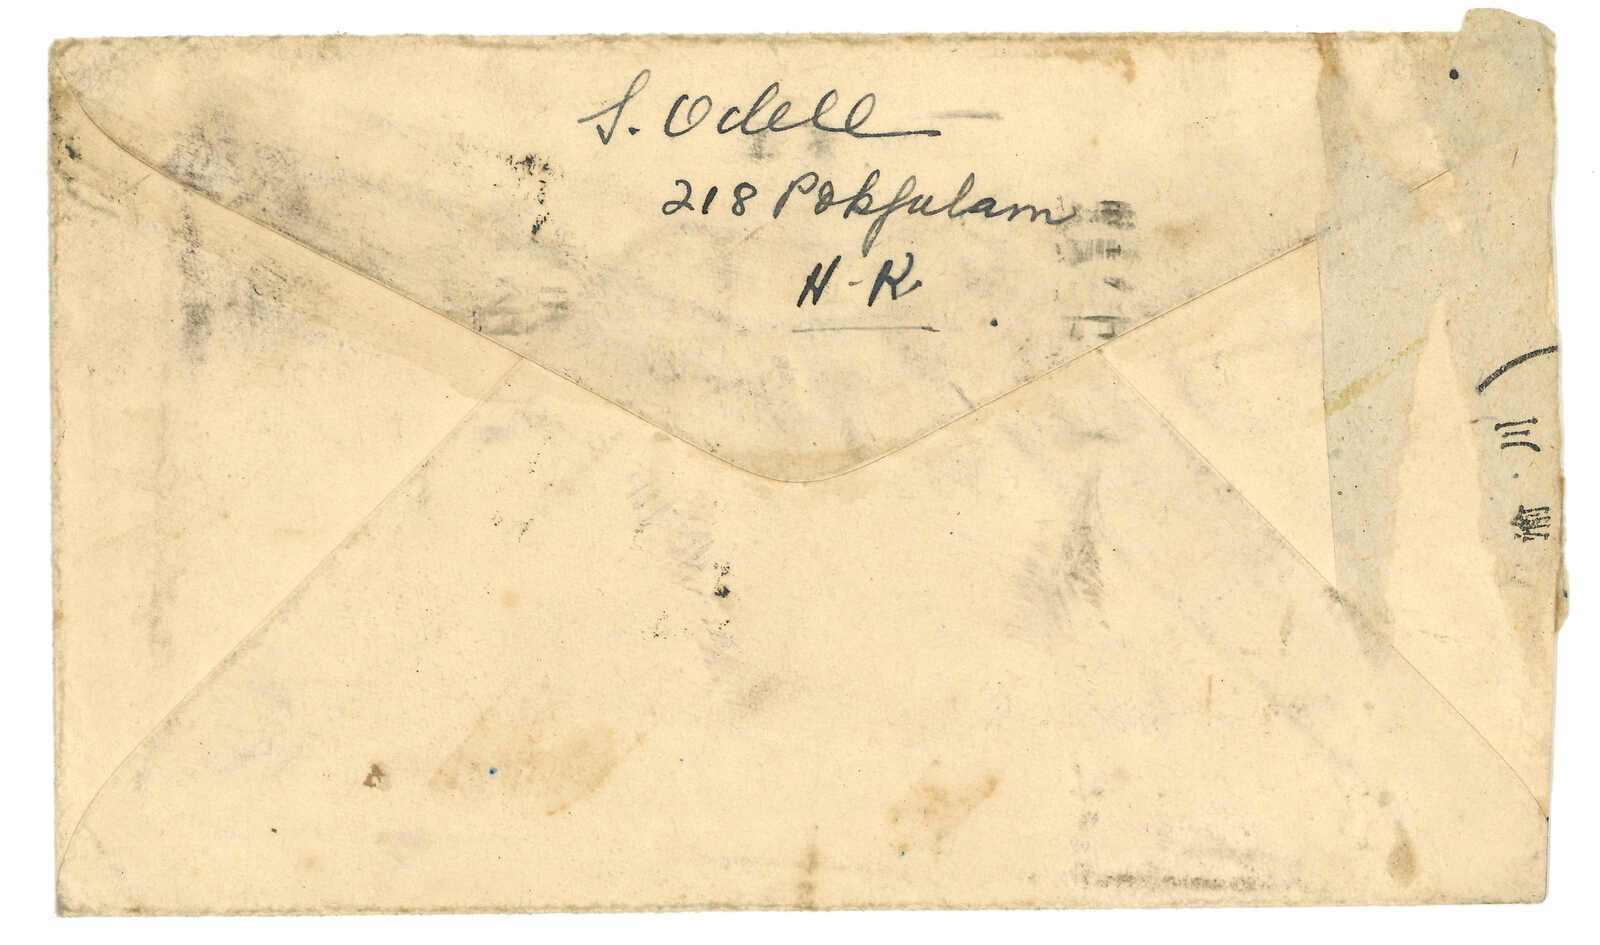 S. Odell
218 Pokfulam
H-K.